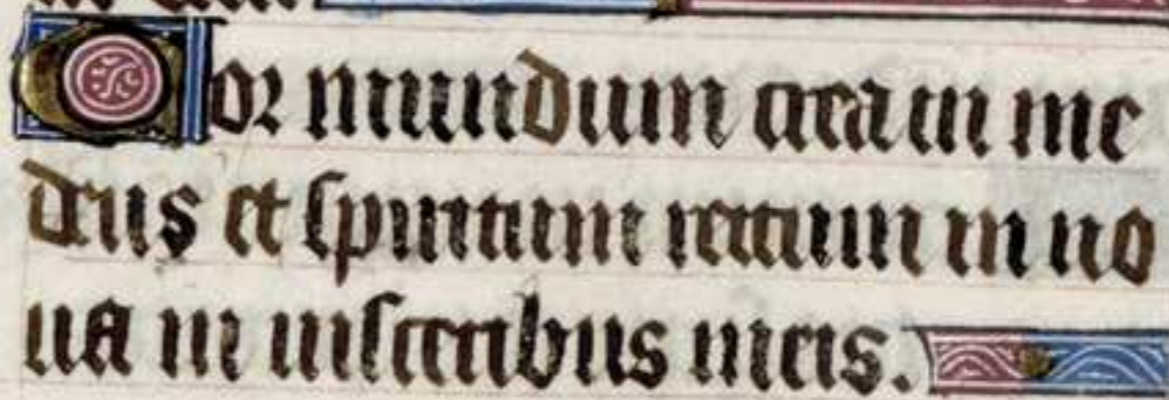 Cor mundum crea in me
deus et spiritum rectum in no
ua in uisceribus meis.